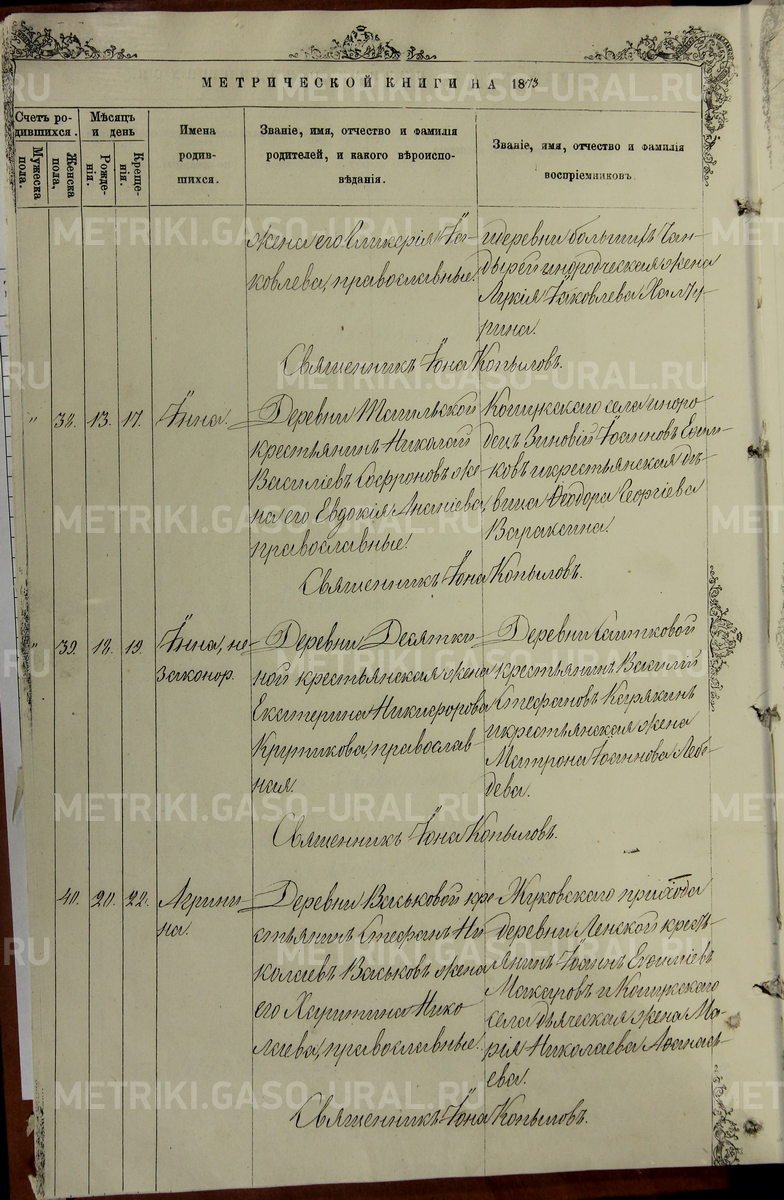 МЕТРИЧЕСКОЙ КНИГИ НА 1873
Счетъ родившихся.
Мужеска пола.
Женска пола,
Мѣсяцъ и день
Рожденія.
Крещенія.
Имена родившихся.
Званіе, имя, отчество и фамилія
родителей, и какого вѣроиспо-
вѣданія.
Званіе, имя, отчество и фамилія
воспріемниковъ.
жена его Гликерія Іа-
ковлева, православные.
деревни большихъ
инородческая жена
Лукія Іаковлева
Священникъ Іона Копыловъ.
" 38. 13. 17.
Анна.
Деревни Тагильской
крестьянинъ Николай
Василіевъ Софроновъ же-
на его Евдокія Ананіева,
православные.
села иноро-
децъ Зиновій Іоанновъ
и крестьянская дѣ-
вица Ѳеодора Георгіева
Вараксина.
Священникъ Іона Копыловъ.
" 39. 18. 19.
Анна, не-
законор.
Деревни Десятки-
ной крестьянская жена
Екатерина Никифорова
Крутикова, православ-
ная.
Деревни
крестьянинъ Василій
Стефановъ Карякинъ
и крестьянская жена
Матрона Іоаннова Лебе-
дева.
Священникъ Іона Копыловъ.
40. 20. 22.
Агрипи-
на.
Деревни Васьковой кре-
стьянинъ Стефанъ Ни-
колаевъ Васьковъ жена
его Харитина Нико-
лаева, православные.
Жуковскаго прихода
деревни Ленской кресть-
янинъ Іоаннъ
Макаровъ и
села дьяческая жена Ма-
рія Николаева Аѳанась-
ева.
Священникъ Іона Копыловъ.
METRIKI.GASO-URAL.RU